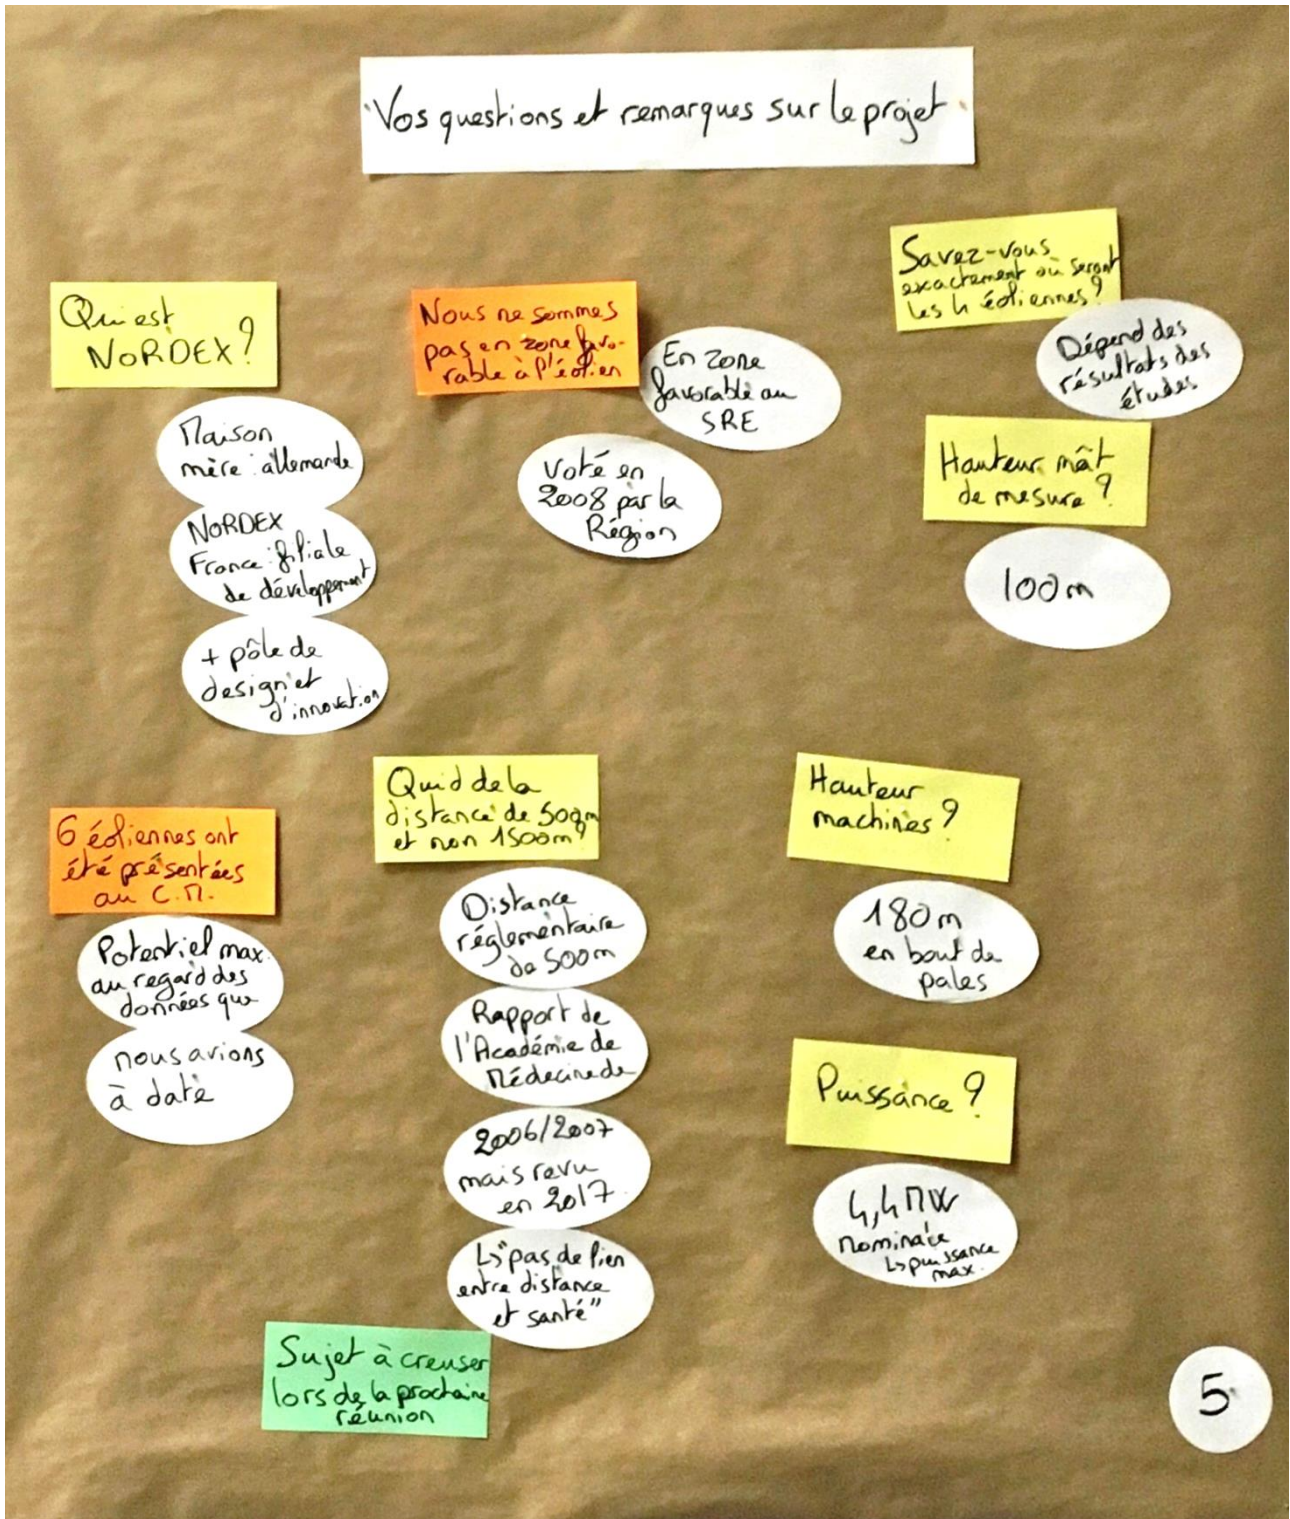 Vos questions et remarques sur le projet
Qui est
NORDEX?
Maison
mère : allemande
NORDEX
France : filiale
de développement
+ pôle de
design et
d'innovation
Nous ne sommes
pas en zone favo-
rable à l'éolien
En zone
favorable au
SRE
Voté en
2008 par la
Région
Savez-vous
exactement où seront
les 4 éoliennes?
Dépend des
résultats des
études
Hauteur mât
de mesure?
100m
6 éoliennes ont
été présentées
au C.M.
Potentiel max.
au regard des
données que
nous avions
à date
Quid de la
distance de 500m
et non 1500m?
Distance
réglementaire
de 500m
Rapport de
l'Académie de
Médecine de
2006/2007
mais revu
en 2017.
↳ "pas de lien
entre distance
et santé"
Sujet à creuser
lors de la prochaine
réunion
Hauteur
machines?
180m
en bout de
pales
Puissance?
4,4 MW
nominale
↳ puissance
max.
5